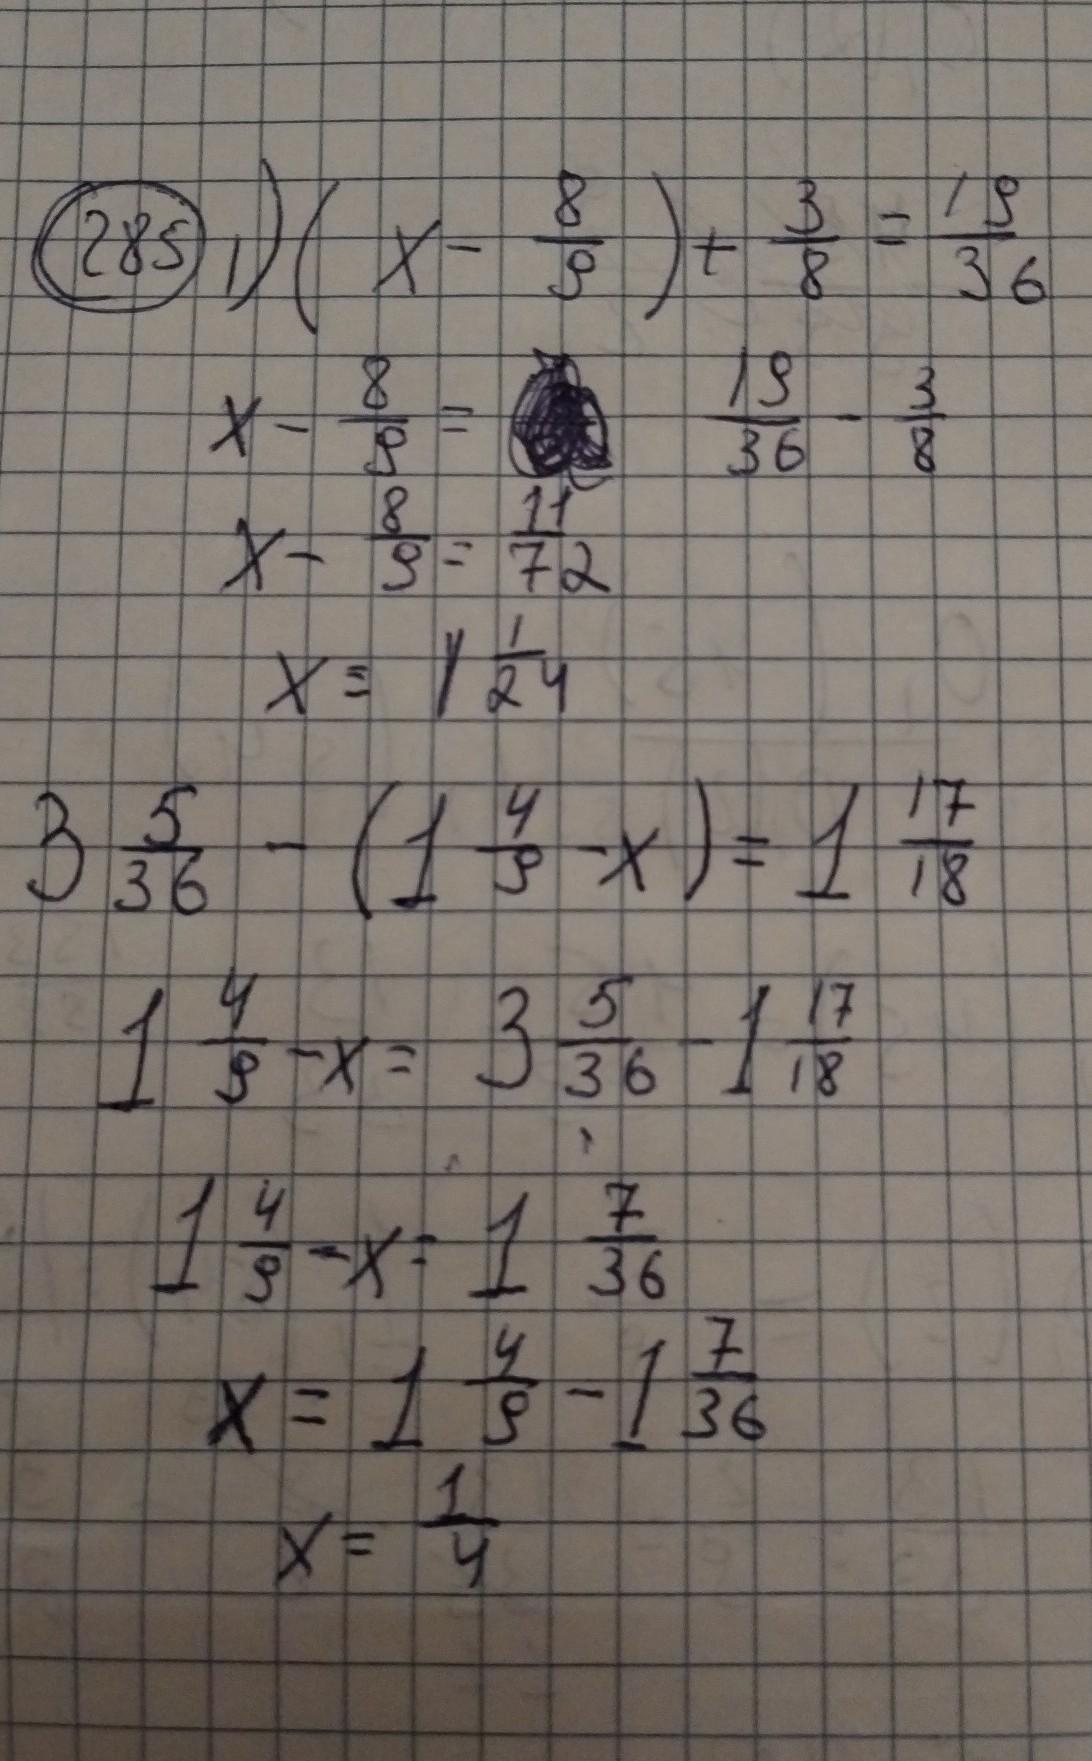 285 1) (x - 8/9) + 3/8 = 19/36
x - 8/9 = 19/36 - 3/8
x - 8/9 = 11/72
x = 1 1/24
3 5/36 - (1 4/9 - x) = 1 17/18
1 4/9 - x = 3 5/36 - 1 17/18
1 4/9 - x = 1 7/36
x = 1 4/9 - 1 7/36
x = 1/4